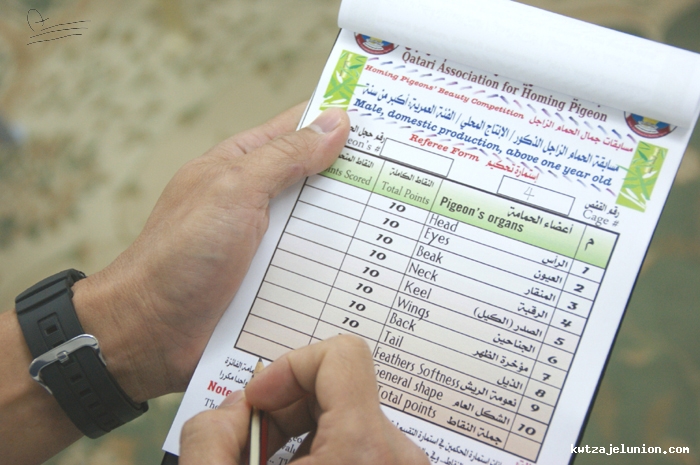 Qatari Association for Homing Pigeon
Homing Pigeons' Beauty Competition مسابقات جمال الحمام الزاجل
مسابقة الحمام الزاجل الذكور / الإنتاج المحلي / الفئة العمرية: أكبر من سنة
Male, domestic production, above one year old
Referee Form استمارة تحكيم
رقم حجل
eon's #
4
رقم القفص
Cage #
م أعضاء الحمامة Pigeon's organs النقاط الكاملة Total Points النقاط nts Scored
1 الرأس Head 10
2 العيون Eyes 10
3 المنقار Beak 10
4 الرقبة Neck 10
5 الصدر (الكيل) Keel 10
6 الجناحين Wings 10
7 مؤخرة الظهر Back 10
8 الذيل Tail 10
9 نعومة الريش Feathers Softness
10 الشكل العام General shape
جملة النقاط Total points
Note
kwtzajelunion.com